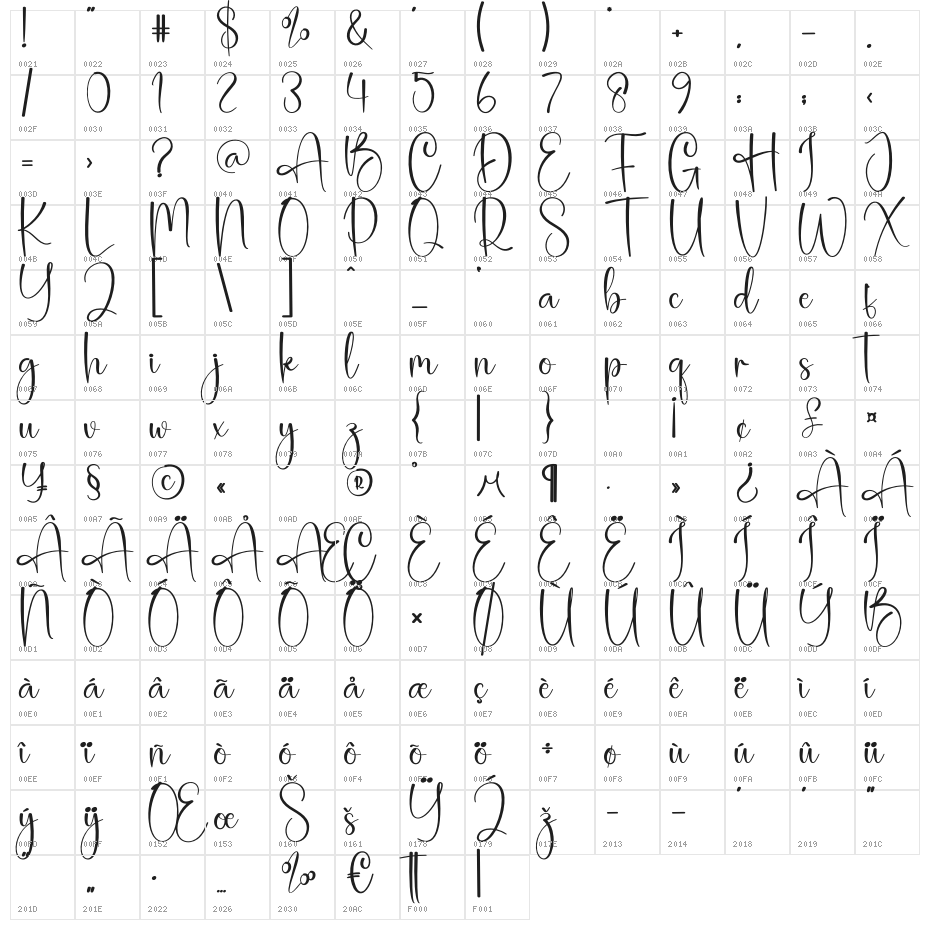 ! " # $ % & ' ( ) * + , - .
0021 0022 0023 0024 0025 0026 0027 0028 0029 002A 002B 002C 002D 002E
/ 0 1 2 3 4 5 6 7 8 9 : ; <
002F 0030 0031 0032 0033 0034 0035 0036 0037 0038 0039 003A 003B 003C
= > ? @ A B C D E F G H I J
003D 003E 003F 0040 0041 0042 0043 0044 0045 0046 0047 0048 0049 004A
K L M N O P Q R S T U V W X
004B 004C 004D 004E 004F 0050 0051 0052 0053 0054 0055 0056 0057 0058
Y Z [ \ ] ^ _ ` a b c d e f
0059 005A 005B 005C 005D 005E 005F 0060 0061 0062 0063 0064 0065 0066
g h i j k l m n o p q r s t
0067 0068 0069 006A 006B 006C 006D 006E 006F 0070 0071 0072 0073 0074
u v w x y z { | } ¡ ¢ £ ¤
0075 0076 0077 0078 0079 007A 007B 007C 007D 00A0 00A1 00A2 00A3 00A4
¥ § © « ® ° µ ¶ · » ¿ À Á
00A5 00A7 00A9 00AB 00AD 00AE 00B0 00B5 00B6 00B7 00BB 00BF 00C0 00C1
Â Ã Ä Å Æ Ç È É Ê Ë Ì Í Î Ï
00C2 00C3 00C4 00C5 00C6 00C7 00C8 00C9 00CA 00CB 00CC 00CD 00CE 00CF
Ñ Ò Ó Ô Õ Ö × Ø Ù Ú Û Ü Ý ß
00D1 00D2 00D3 00D4 00D5 00D6 00D7 00D8 00D9 00DA 00DB 00DC 00DD 00DF
à á â ã ä å æ ç è é ê ë ì í
00E0 00E1 00E2 00E3 00E4 00E5 00E6 00E7 00E8 00E9 00EA 00EB 00EC 00ED
î ï ñ ò ó ô õ ö ÷ ø ù ú û ü
00EE 00EF 00F1 00F2 00F3 00F4 00F5 00F6 00F7 00F8 00F9 00FA 00FB 00FC
ý ÿ Œ œ Š š Ÿ Ź ž – — ‘ ’ “
00FD 00FF 0152 0153 0160 0161 0178 0179 017E 2013 2014 2018 2019 201C
” „ • … ‰ €
201D 201E 2022 2026 2030 20AC F000 F001